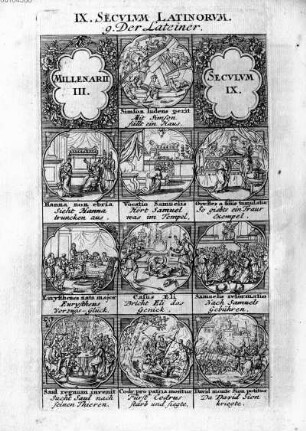 IX. SECULUM LATINORUM.
9. Der Lateiner.
MILLENARII
III.
SECULUM
IX.
Simson ludens perit
Mit Simson
fällt ein Haus.
Hanna non ebria
Sieht Hanna
truncken aus.
Vocatio Samuelis
Hört Samuel
was im Tempel.
So giebts ein Traur
Exempel.
Eurysthenes natu major
Eurysthens
Vorzugs-Glück.
Casus Eli
Bricht Eli das
Genick.
Samuelis reformatio
Nach Samuels
Gebühren.
Saul regnum invenit
Sucht Saul nach
seinen Thieren.
Codr. pro patria moritur
Fürst Codrus
starb und siegte.
David monte Sion potitur
Da David Sion
kriegte.